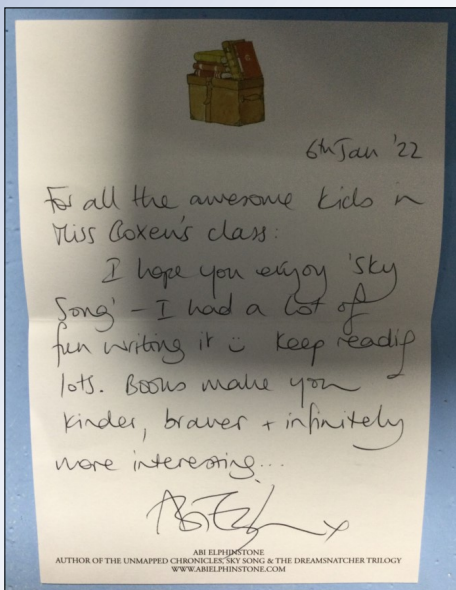 6th Jan '22
For all the awesome kids in
Miss Coxen's class:
I hope you enjoy 'Sky
Song' – I had a lot of
fun writing it ☺ Keep reading
lots. Books make you
kinder, braver + infinitely
more interesting...
Abi Elph x
ABI ELPHINSTONE
AUTHOR OF THE UNMAPPED CHRONICLES, SKY SONG & THE DREAMSNATCHER TRILOGY
WWW.ABIELPHINSTONE.COM